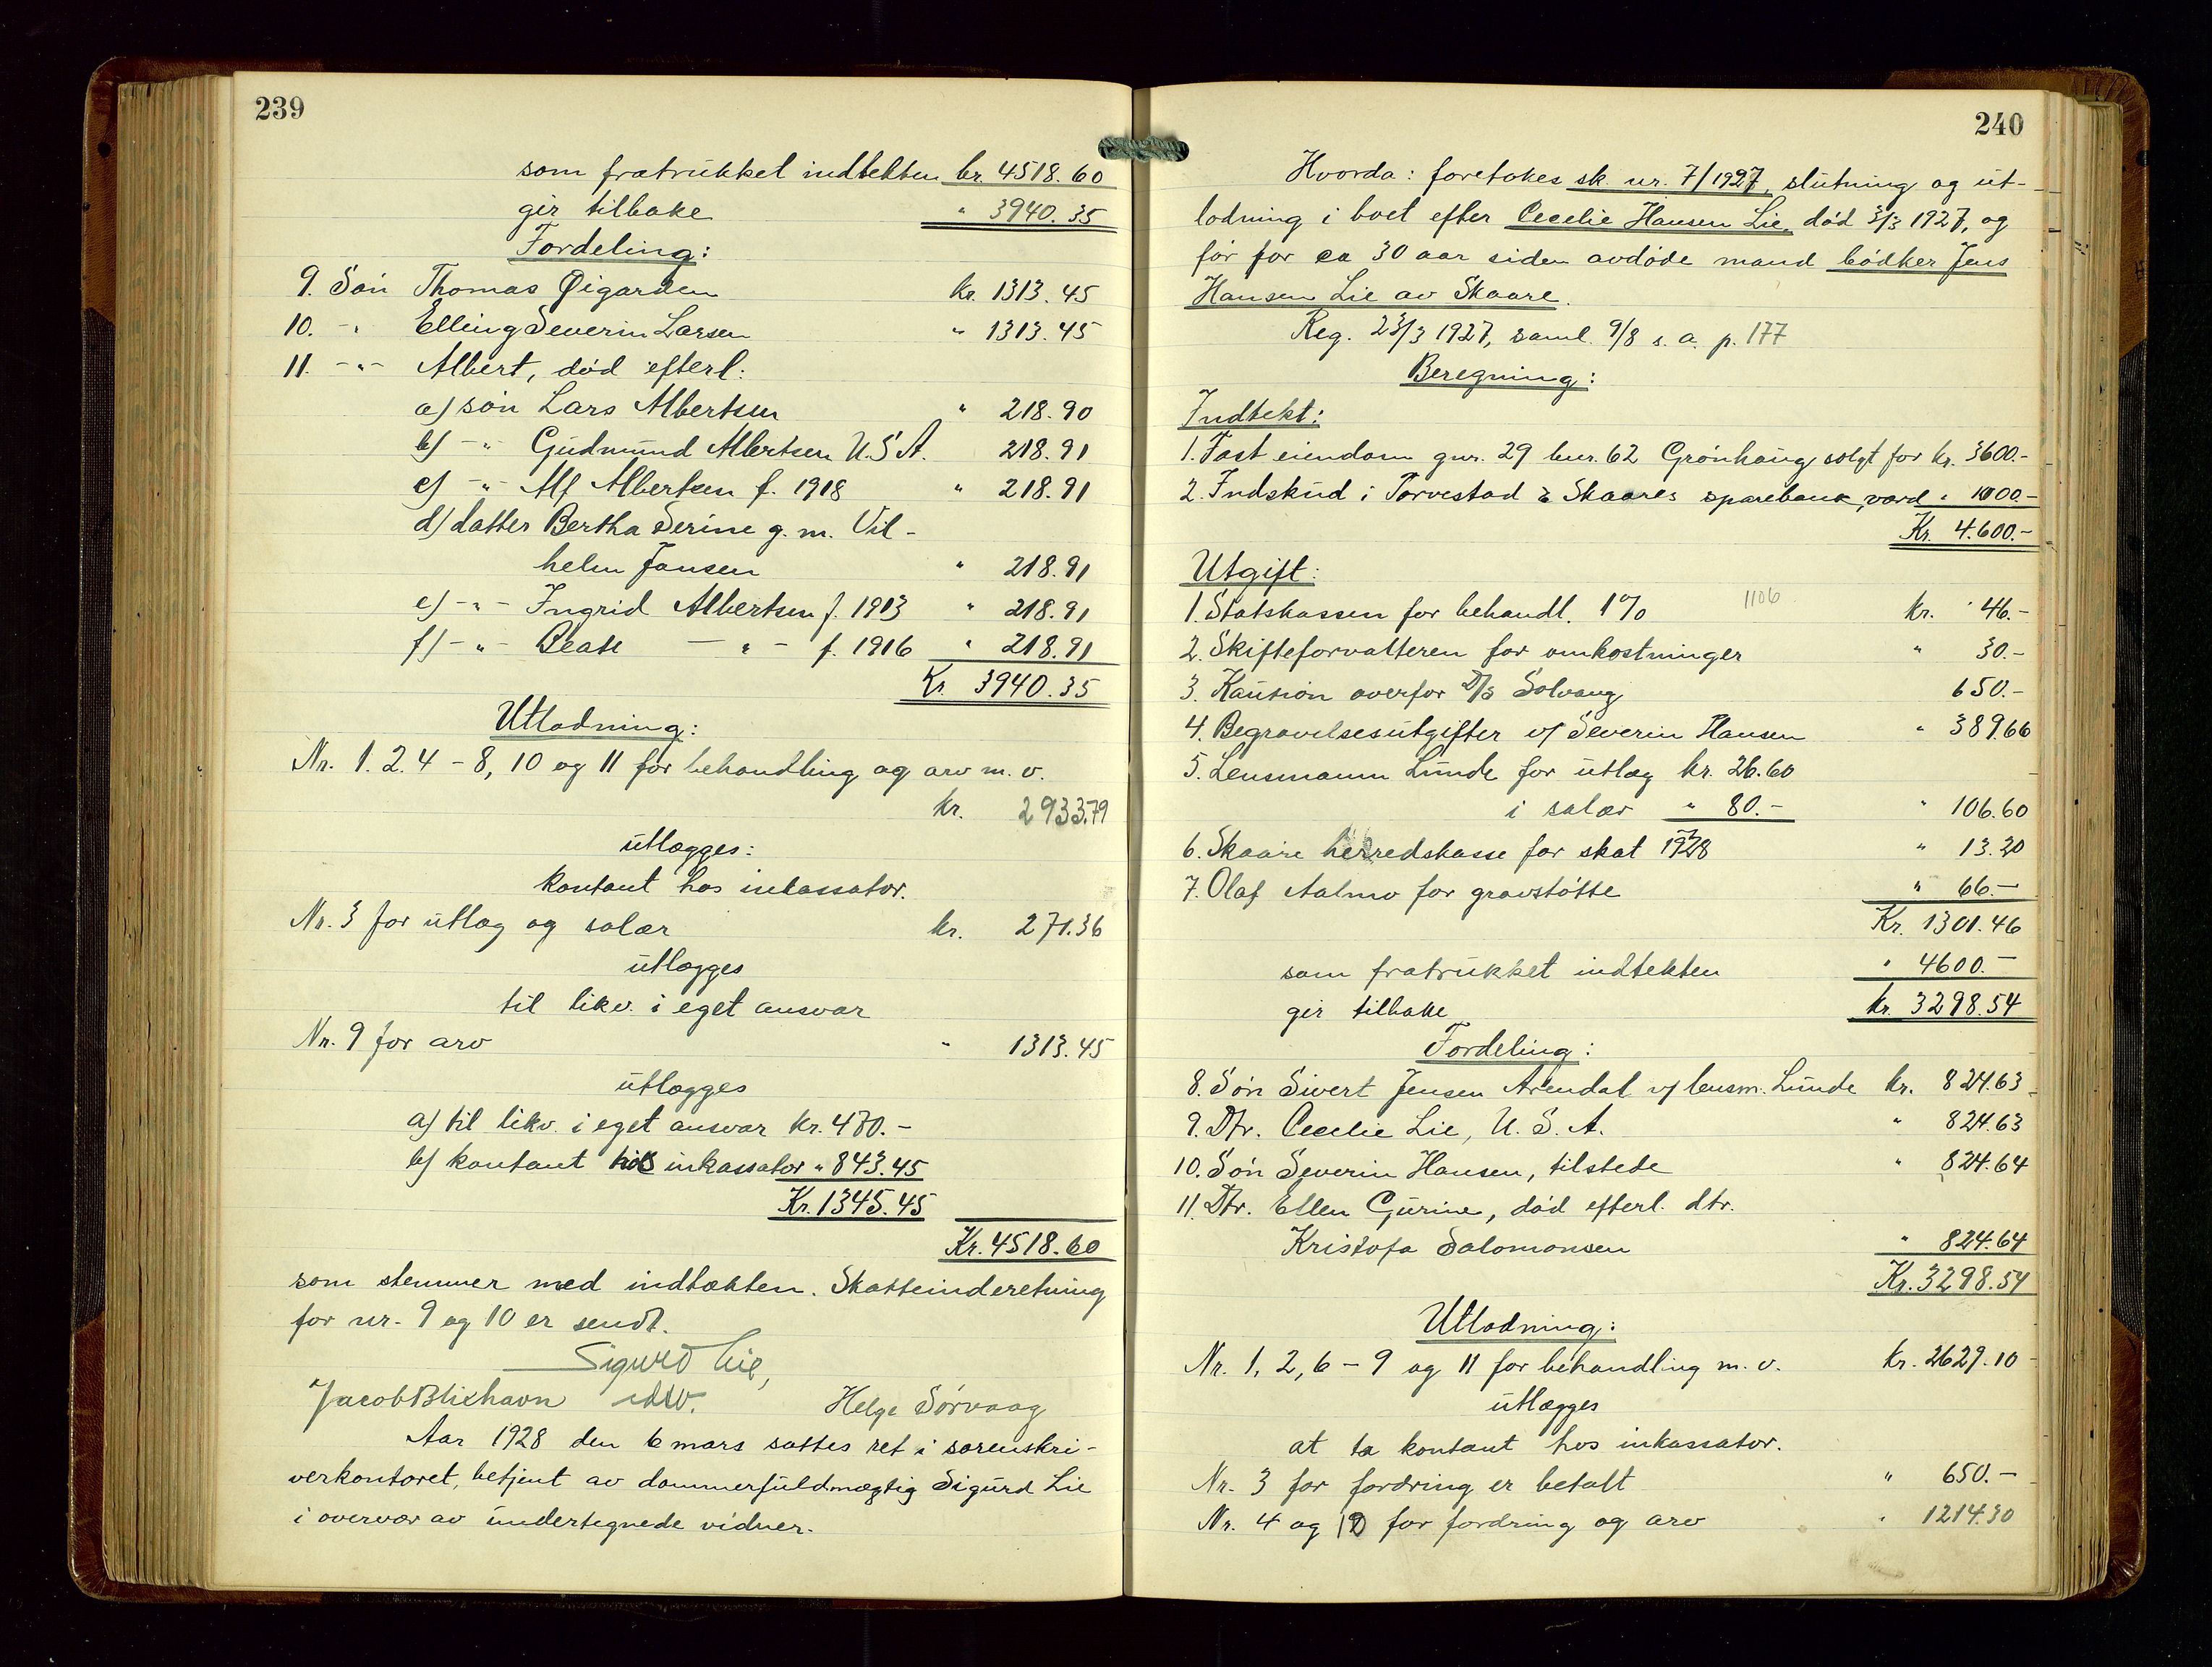 239
som fratrukket indtekten kr. 4518.60
gir tilbake " 3940.35
Fordeling:
9. Søn Thomas Øigarden kr. 1313.45
10. -"- Elling Severin Larsen " 1313.45
11. -"- Albert, død efterl:
a) søn Lars Albertsen " 218.90
b) -"- Gudmund Albertsen U.S.A. 218.91
c) -"- Alf Albertsen f. 1918 " 218.91
d) datter Bertha Serine g. m. Vil-
helm Jansen " 218.91
e) -"- Ingrid Albertsen f. 1913 " 218.91
f) -"- Beate -"- f. 1916 " 218.91
Kr. 3940.35
Utlodning:
Nr. 1. 2. 4 - 8, 10 og 11 for behandling og arv m. v.
kr. 2933.79
utlægges:
kontant hos inkassator.
Nr. 3 for utlæg og salær kr. 271.36
utlægges
til likv. i eget ansvar
Nr. 9 for arv " 1313.45
utlægges
a) til likv. i eget ansvar kr. 470.-
b) kontant hos inkassator " 843.45
Kr. 1345.45
Kr. 4518.60
som stemmer med indtækten. Skatteinderetning
for nr. 9 og 10 er sendt.
Sigurd Lie,
Jacob Blikhavn Helge Sørvaag
Aar 1928 den 6 mars sattes ret i sorenskri-
verkontoret, betjent av dommerfuldmægtig Sigurd Lie
i overvær av undertegnede vidner.
240
Hvorda: foretokes sk. nr. 7/1927, slutning og ut-
lodning i boet efter Cecelie Hansen Lie, død 3/3 1927, og
før for ca 30 aar siden avdøde mand bødker Jens
Hansen Lie av Skaare.
Reg. 23/3 1927, saml. 9/8 s. a. p. 177
Beregning:
Indtekt:
1. Fast eiendom gnr. 29 bnr. 62 Grønhaug solgt for kr. 3600.-
2. Indskud i Torvestad & Skaares sparebank, værd " 1000.-
Kr. 4.600.-
Utgift:
1. Statskassen for behandl. 1% 1106 kr. 46.-
2. Skifteforvalteren for omkostninger " 30.-
3. Kaution overfor D/S Solvang 650.-
4. Begravelsesutgifter v/ Severin Hansen " 389.66
5. Lensmann Lunde for utlæg kr. 26.60
i salær " 80.- " 106.60
6. Skaare herredskasse for skat 1928 " 13.20
7. Olaf Aalmo for gravstøtte " 66.-
Kr. 1301.46
som fratrukket indtekten " 4600.-
gir tilbake kr. 3298.54
Fordeling:
8. Søn Sivert Jensen Arendal v/ lensm. Lunde kr. 824.63
9. Dtr. Cecelie Lie, U. S. A. " 824.63
10. Søn Severin Hansen, tilstede " 824.64
11. Dtr. Ellen Gurine, død efterl. dtr.
Kristofa Salomonsen " 824.64
Kr. 3298.54
Utlodning:
Nr. 1, 2, 6 - 9 og 11 for behandling m. v. kr. 2629.10
utlægges
at ta kontant hos inkassator.
Nr. 3 for fordring er betalt " 650.-
Nr. 4 og 10 for fordring og arv " 1214.30